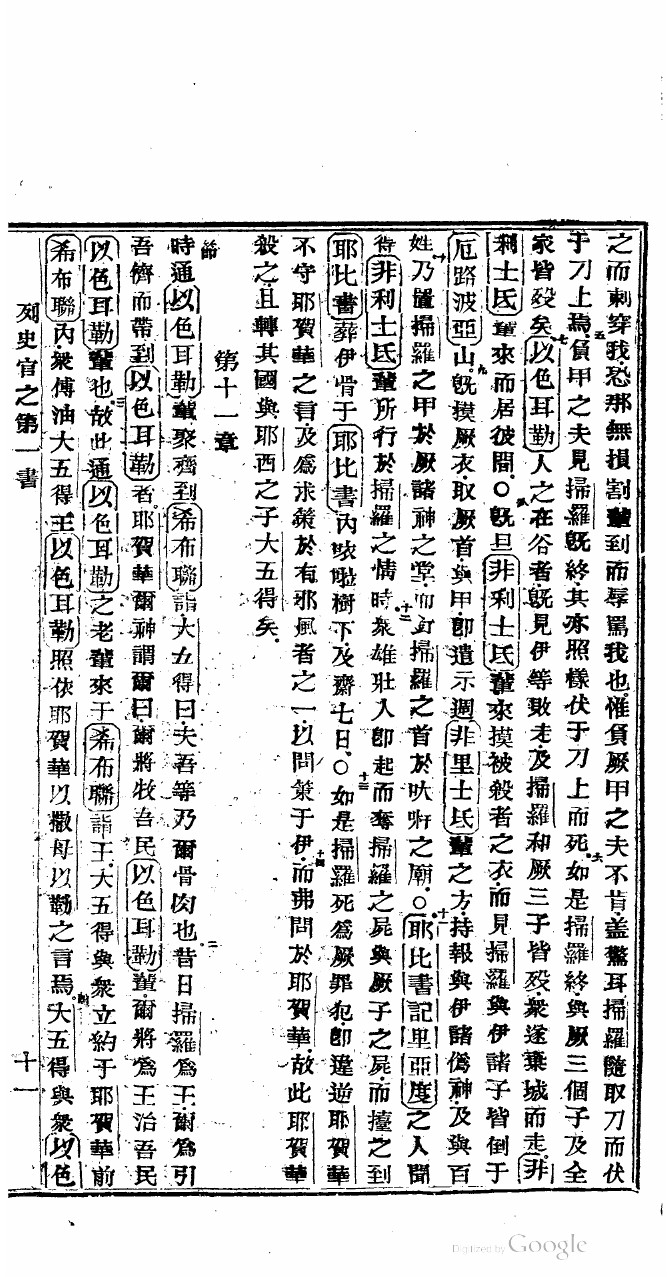 之而刺穿我恐那無損割輩到而辱罵我也惟負厥甲之夫不肯蓋驚耳掃羅隨取刀而伏
于刀上焉五負甲之夫見掃羅既終其亦照樣伏于刀上而死六如是掃羅終與厥三個子及全
家皆殁矣七以色耳勒人之在谷者既見伊等敗走及掃羅和厥三子皆殁衆遂棄城而走非
利士氏輩來而居彼間〇八既旦非利士氏輩來摸被殺者之衣而見掃羅與伊諸子皆倒于
厄路波亞山九既摸厥衣取厥首與甲卽遣示週非里士氏輩之方持報與伊諸僞神及與百
姓十乃置掃羅之甲於厥諸神之堂而釘掃羅之首於之廟〇十一耶比書記里亞度之人聞
得非利士氏輩所行於掃羅之情時十二衆雄壯人卽起而奪掃羅之屍與厥子之屍而擡之到
耶比書葬伊骨于耶比書內樹下及齋七日〇十三如是掃羅死爲厥罪犯卽違逆耶賀華
不守耶賀華之言及爲求策於有邪風者之一以問策于伊十四而弗問於耶賀華故此耶賀華
殺之且轉其國與耶西之子大五得矣
第十一章
一節時通以色耳勒輩聚齊到希布聯詣大五得曰夫吾等乃爾骨肉也二昔日掃羅爲王爾爲引
吾儕而帶到以色耳勒者耶賀華爾神謂爾曰爾將牧吾民以色耳勒輩爾將爲王治吾民
以色耳勒輩也三故此通以色耳勒之老輩來于希布聯詣王大五得與衆立約于耶賀華前
希布聯內衆傅油大五得王以色耳勒照依耶賀華以撒母以勒之言焉四大五得與衆以色
列史官之第一書
十一
Digitized by Google